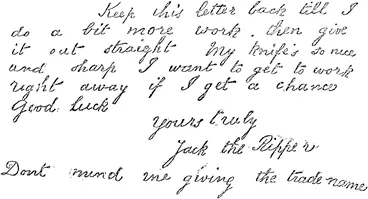 Keep this letter back till I
do a bit more work. then give
it out straight My knife's so nice
and sharp I want to get to work
right away if I get a chance
Good luck
yours truly
Jack the Ripper
Dont mind me giving the trade name